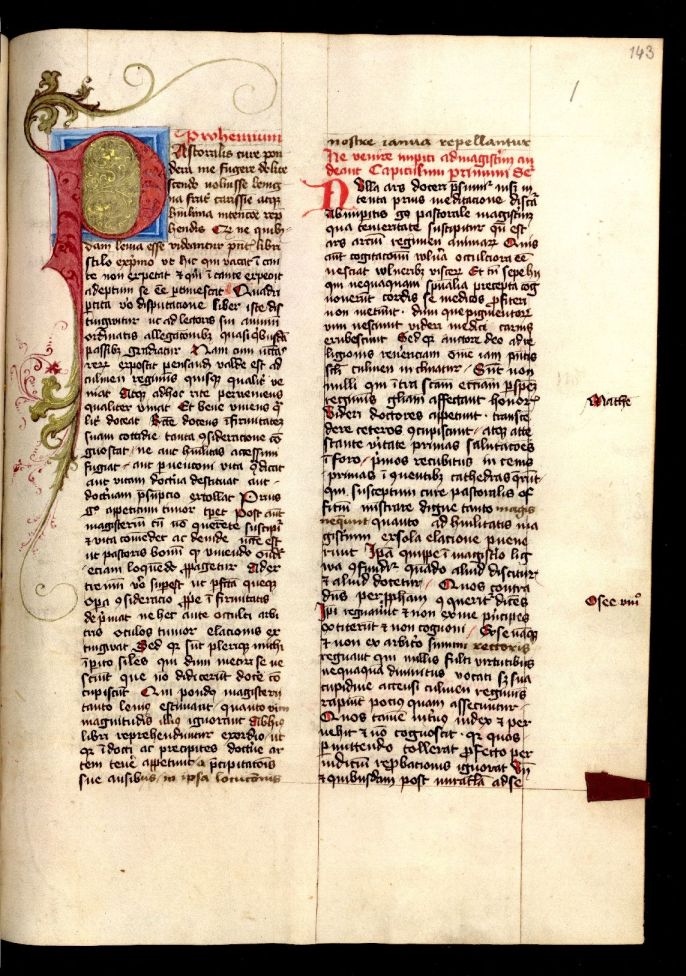 143
1
Prohemium
Pastoralis cure pon
dera me fugere delite
scendo voluisse benig
na frat̉ carissīe atq̨
humilima intencōe rep
hendis Et ne quibꝰ
dam leuia esse videantur pn̄tꝭ libri
stilo exprimo vt hic qui vacat īcau
te non expetat et qui īcaute expecijt
adeptum se eē pertimescat Quadri
ptita vo disputacione liber iste dis
tinguitur vt ad lectoris sui animū
ordinatis allegacionibꝫ quasi q̇busdā
passibꝫ gradiatur Nam cum
rerꝝ expostit pensandū valde est ad
culmen regiminis quisq̨ qualit̉ ve
niat Atq̨ adhoc rite perueniens
qualiter viuat Et bene viuens q̄
lit̉ doceat Recte docens īfirmitatē
suam cotidie tanta ꝯsideracione cō
gnoscat ne aut humilitas accessum
fugiat aut puencōni vita ꝯtdicat
aut vitam doctrīa destituat aut
doctrinam p̄supcio extollat Prius
gͦ appetitum timor tp̄et Post aut̄
magisteriū cū nō querēte suscipit̉
et vita cōmēdet ac deinde
vt pastoris bonū q̨ viuendo
eciam loquēdo propagetur Ad ex
tremū vo suꝑest vt pfecta queq̨
opa ꝯsideracio proprie īfirmitatis
depͥmat ne hec ante occulti arbi
trio oculos tumor elacionis ex
tinguat Sed qꝛ sūt pleriq̨ michi
īpito siles qui dum metiri se ne
sciūt que nō didicerūt doce cō
cupiscūt Qui pondꝰ magisterij
tanto leuiꝰ estimant quanto vim
magnitudis illiꝰ ignorant Abhiꝰ
libri reprehendūtur exordio vt
qꝛ īdocti ac precipites doctrīe ar
cem tenē appetunt a p̄cipitatōis
sue ausibus in ipsa locucōnis
nostre ianua repellantur
Ne venire impiti ad magistm̄ au
deant Capitulum primum
Nulla ars doceri p̄sumit̉ nisi in
tenta prius meditacione discat̉
ab impitis gͦ pastorale magistiū
qua temeritate suscipitur qn̄ est
ars arciū regimen animarꝝ Quis
aūt cogitacionū wln̄a occulciora eē
nesciat wlneribꝫ viscerꝝ Et tn̄ sepe hij
qui nequaquam spūalia precepta cog
nouerūt cordis se medicos ꝓfiteri
non metuūt dum qui pigmentorꝝ
vim nesciunt videri medici carnis
erubescunt Sed qꝛ auctore deo ad re
ligionis reuerenciam omē iam pn̄tis
scl̄i culmen inclinatur Sunt non
nulli qui ītra sc̄am eccīam ꝑ spēꝫ
regiminis gl̄iam affectant honorꝭ
Videri doctores appetunt transcē
dere ceteros ꝯcupiscūt atq̨ atte
stante vitate primas salutacōes
ī foro pͥmos recubitus in cenis
primas ī quentibꝫ cathedras querūt
qui susceptum cure pastoralis of
fitiū ministrare digne tanto magis
nequeūt quanto ad humilitatis ma
gistiū ex sola elacione puene
rūt Ipā quippe ī magistio lig
wa ꝯfundit̉ quādo aliud discitur
et aliud docetur Quos contra
dn̄s per prophām ꝯquerit̉ dicēs
Ipi regnauūt et non ex me pͥncipes
extiterūt et non cognoui Ex se naq̨
et non ex arbitͥo summi rectoris
regnant qui nullis fulti virtutibus
nequaquā diuinitus vocati sꝫ sua
cupidine accensi culmen regimīs
rapiūt pociꝰ quam assecuntur
Quos tamē intͥnꝰ iudex et per
uehit et nō cognoscit qꝛ quos
pmittendo tollerat profecto per
iudiciū reprobacionis ignorat Vn̄
et quibusdam post miracula ad se
Mathe
Osee viijͦ